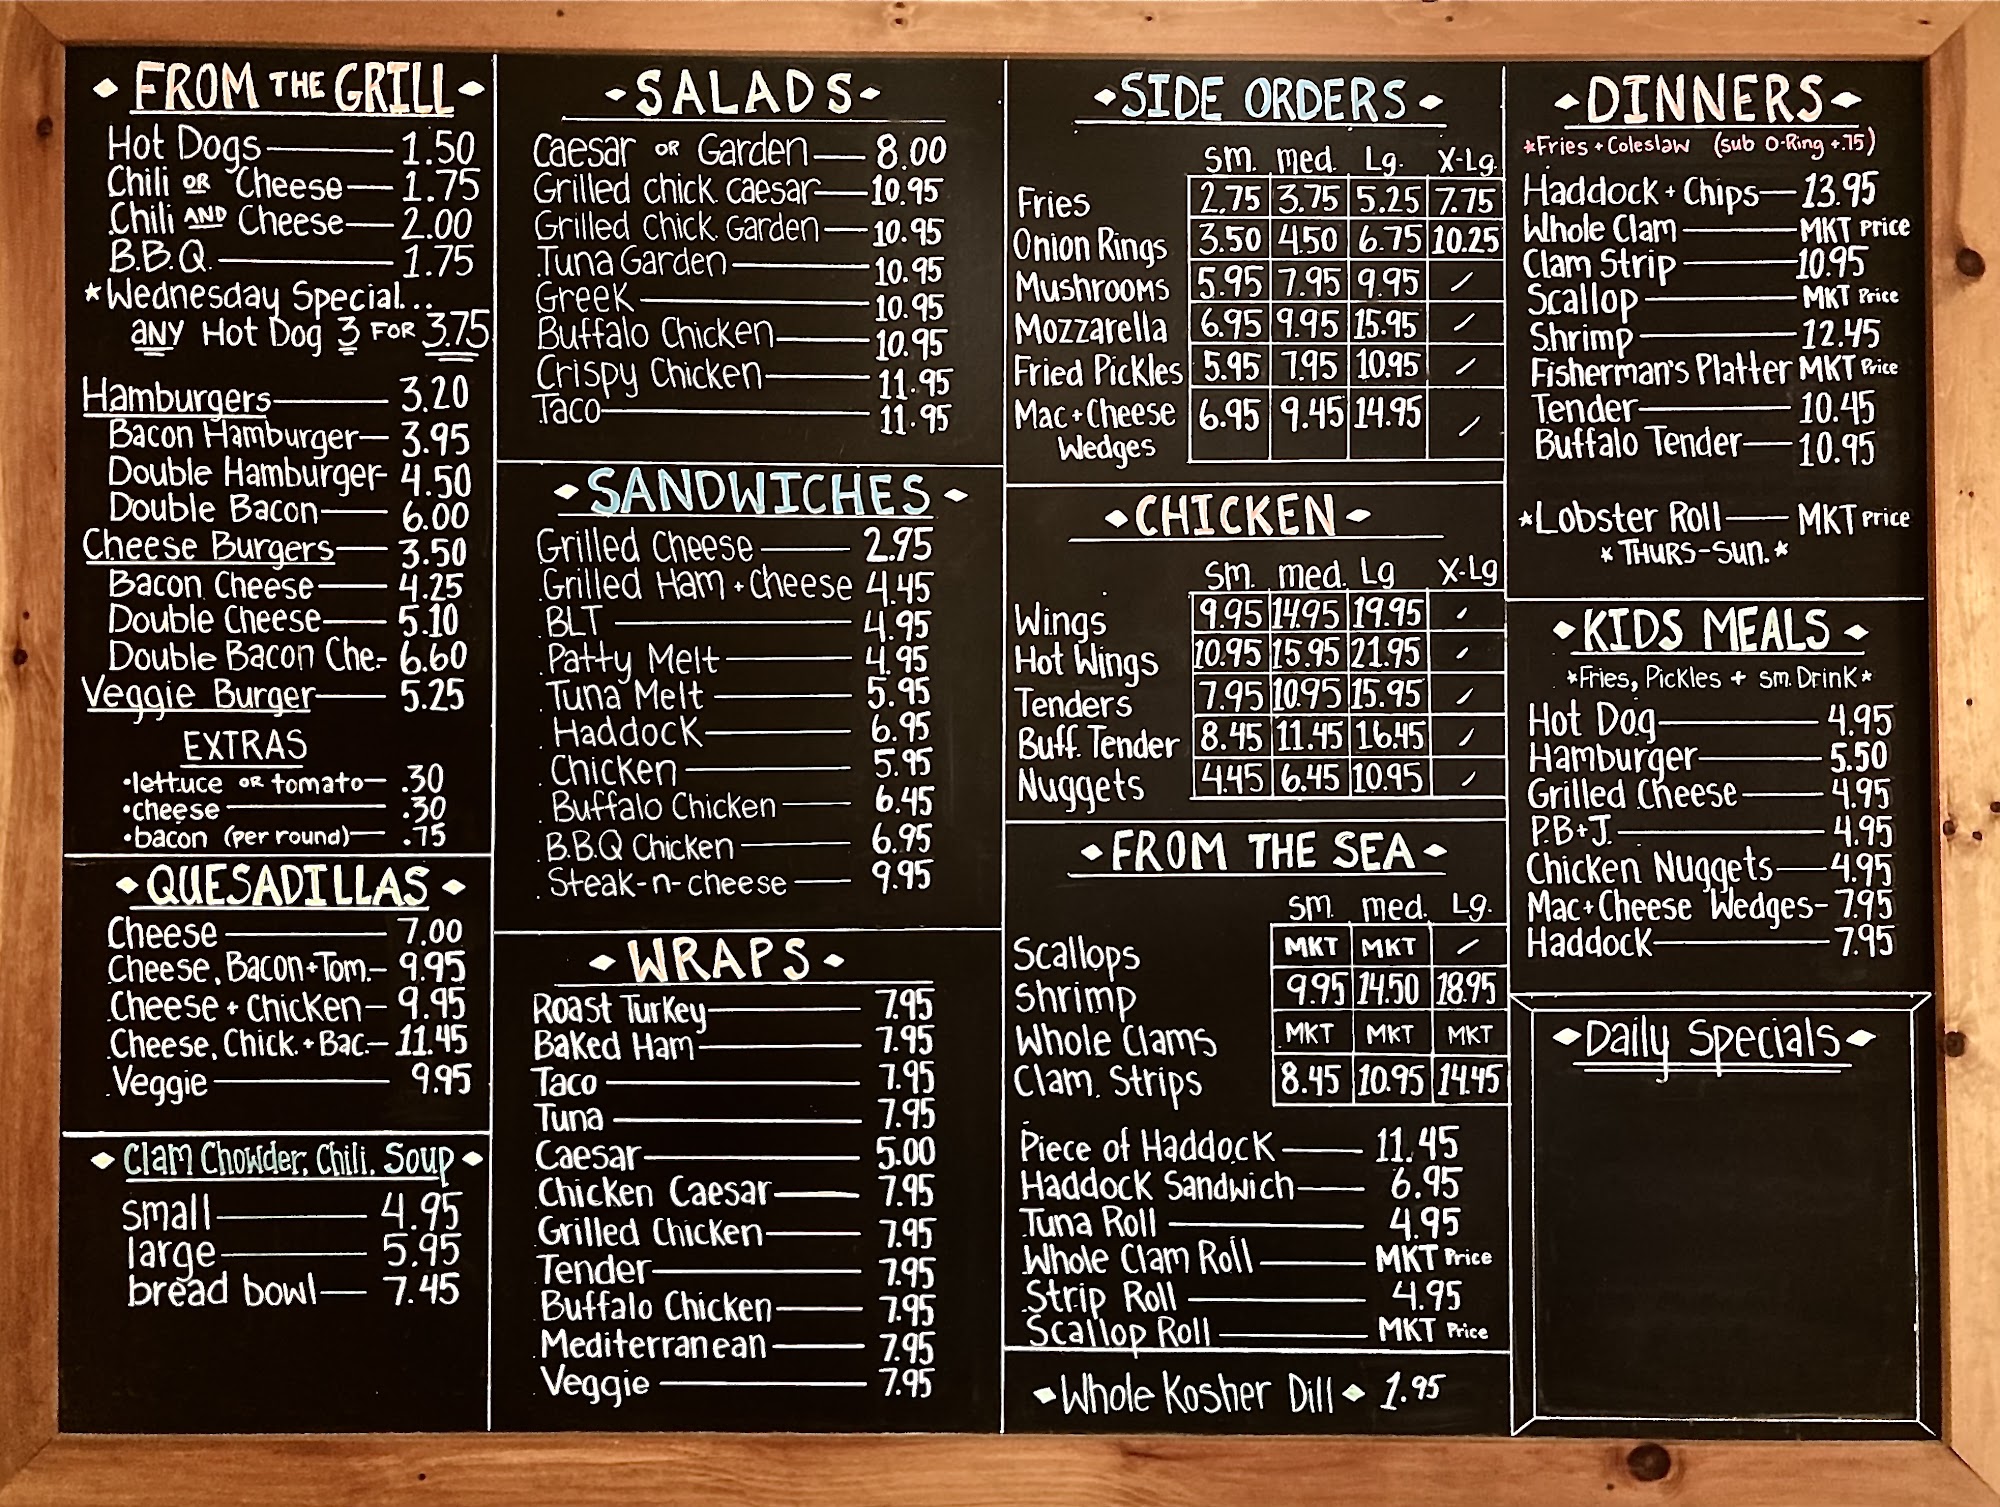 FROM THE GRILL
Hot Dogs 1.50
Chili OR Cheese 1.75
Chili AND Cheese 2.00
B.B.Q. 1.75
*Wednesday Special...
ANY Hot Dog 3 FOR 3.75
Hamburgers 3.20
Bacon Hamburger 3.95
Double Hamburger 4.50
Double Bacon 6.00
Cheese Burgers 3.50
Bacon Cheese 4.25
Double Cheese 5.10
Double Bacon Che. 6.60
Veggie Burger 5.25
EXTRAS
•lettuce OR tomato .30
•cheese .30
•bacon (per round) .75
QUESADILLAS
Cheese 7.00
Cheese, Bacon+Tom. 9.95
Cheese + Chicken 9.95
Cheese, Chick. + Bac. 11.45
Veggie 9.95
Clam Chowder, Chili, Soup
small 4.95
large 5.95
bread bowl 7.45
SALADS
Caesar OR Garden 8.00
Grilled chick. Caesar 10.95
Grilled Chick. Garden 10.95
Tuna Garden 10.95
Greek 10.95
Buffalo Chicken 10.95
Crispy Chicken 11.95
Taco 11.95
SANDWICHES
Grilled Cheese 2.95
Grilled Ham + Cheese 4.45
BLT 4.95
Patty Melt 4.95
Tuna Melt 5.95
Haddock 6.95
Chicken 5.95
Buffalo Chicken 6.45
B.B.Q Chicken 6.95
Steak-n-cheese 9.95
WRAPS
Roast Turkey 7.95
Baked Ham 7.95
Taco 7.95
Tuna 7.95
Caesar 5.00
Chicken Caesar 7.95
Grilled Chicken 7.95
Tender 7.95
Buffalo Chicken 7.95
Mediterranean 7.95
Veggie 7.95
SIDE ORDERS
Sm. med. Lg. X-Lg.
Fries 2.75 3.75 5.25 7.75
Onion Rings 3.50 4.50 6.75 10.25
Mushrooms 5.95 7.95 9.95 /
Mozzarella 6.95 9.95 15.95 /
Fried Pickles 5.95 7.95 10.95 /
Mac + Cheese 6.95 9.45 14.95 /
Wedges
CHICKEN
Sm. med. Lg X-Lg
Wings 9.95 14.95 19.95 /
Hot Wings 10.95 15.95 21.95 /
Tenders 7.95 10.95 15.95 /
Buff. Tender 8.45 11.45 16.45 /
Nuggets 4.45 6.45 10.95 /
FROM THE SEA
Sm. med. Lg.
Scallops MKT MKT /
Shrimp 9.95 14.50 18.95
Whole Clams MKT MKT MKT
Clam Strips 8.45 10.95 14.45
Piece of Haddock 11.45
Haddock Sandwich 6.95
Tuna Roll 4.95
Whole Clam Roll MKT Price
Strip Roll 4.95
Scallop Roll MKT Price
Whole Kosher Dill 1.95
DINNERS
*Fries + Coleslaw (sub O-Ring +.75)
Haddock + Chips 13.95
Whole Clam MKT Price
Clam Strip 10.95
Scallop MKT Price
Shrimp 12.45
Fisherman's Platter MKT Price
Tender 10.45
Buffalo Tender 10.95
*Lobster Roll MKT Price
* THURS-SUN. *
KIDS MEALS
*Fries, Pickles + sm. Drink*
Hot Dog 4.95
Hamburger 5.50
Grilled Cheese 4.95
P.B+J. 4.95
Chicken Nuggets 4.95
Mac+Cheese Wedges 7.95
Haddock 7.95
Daily Specials